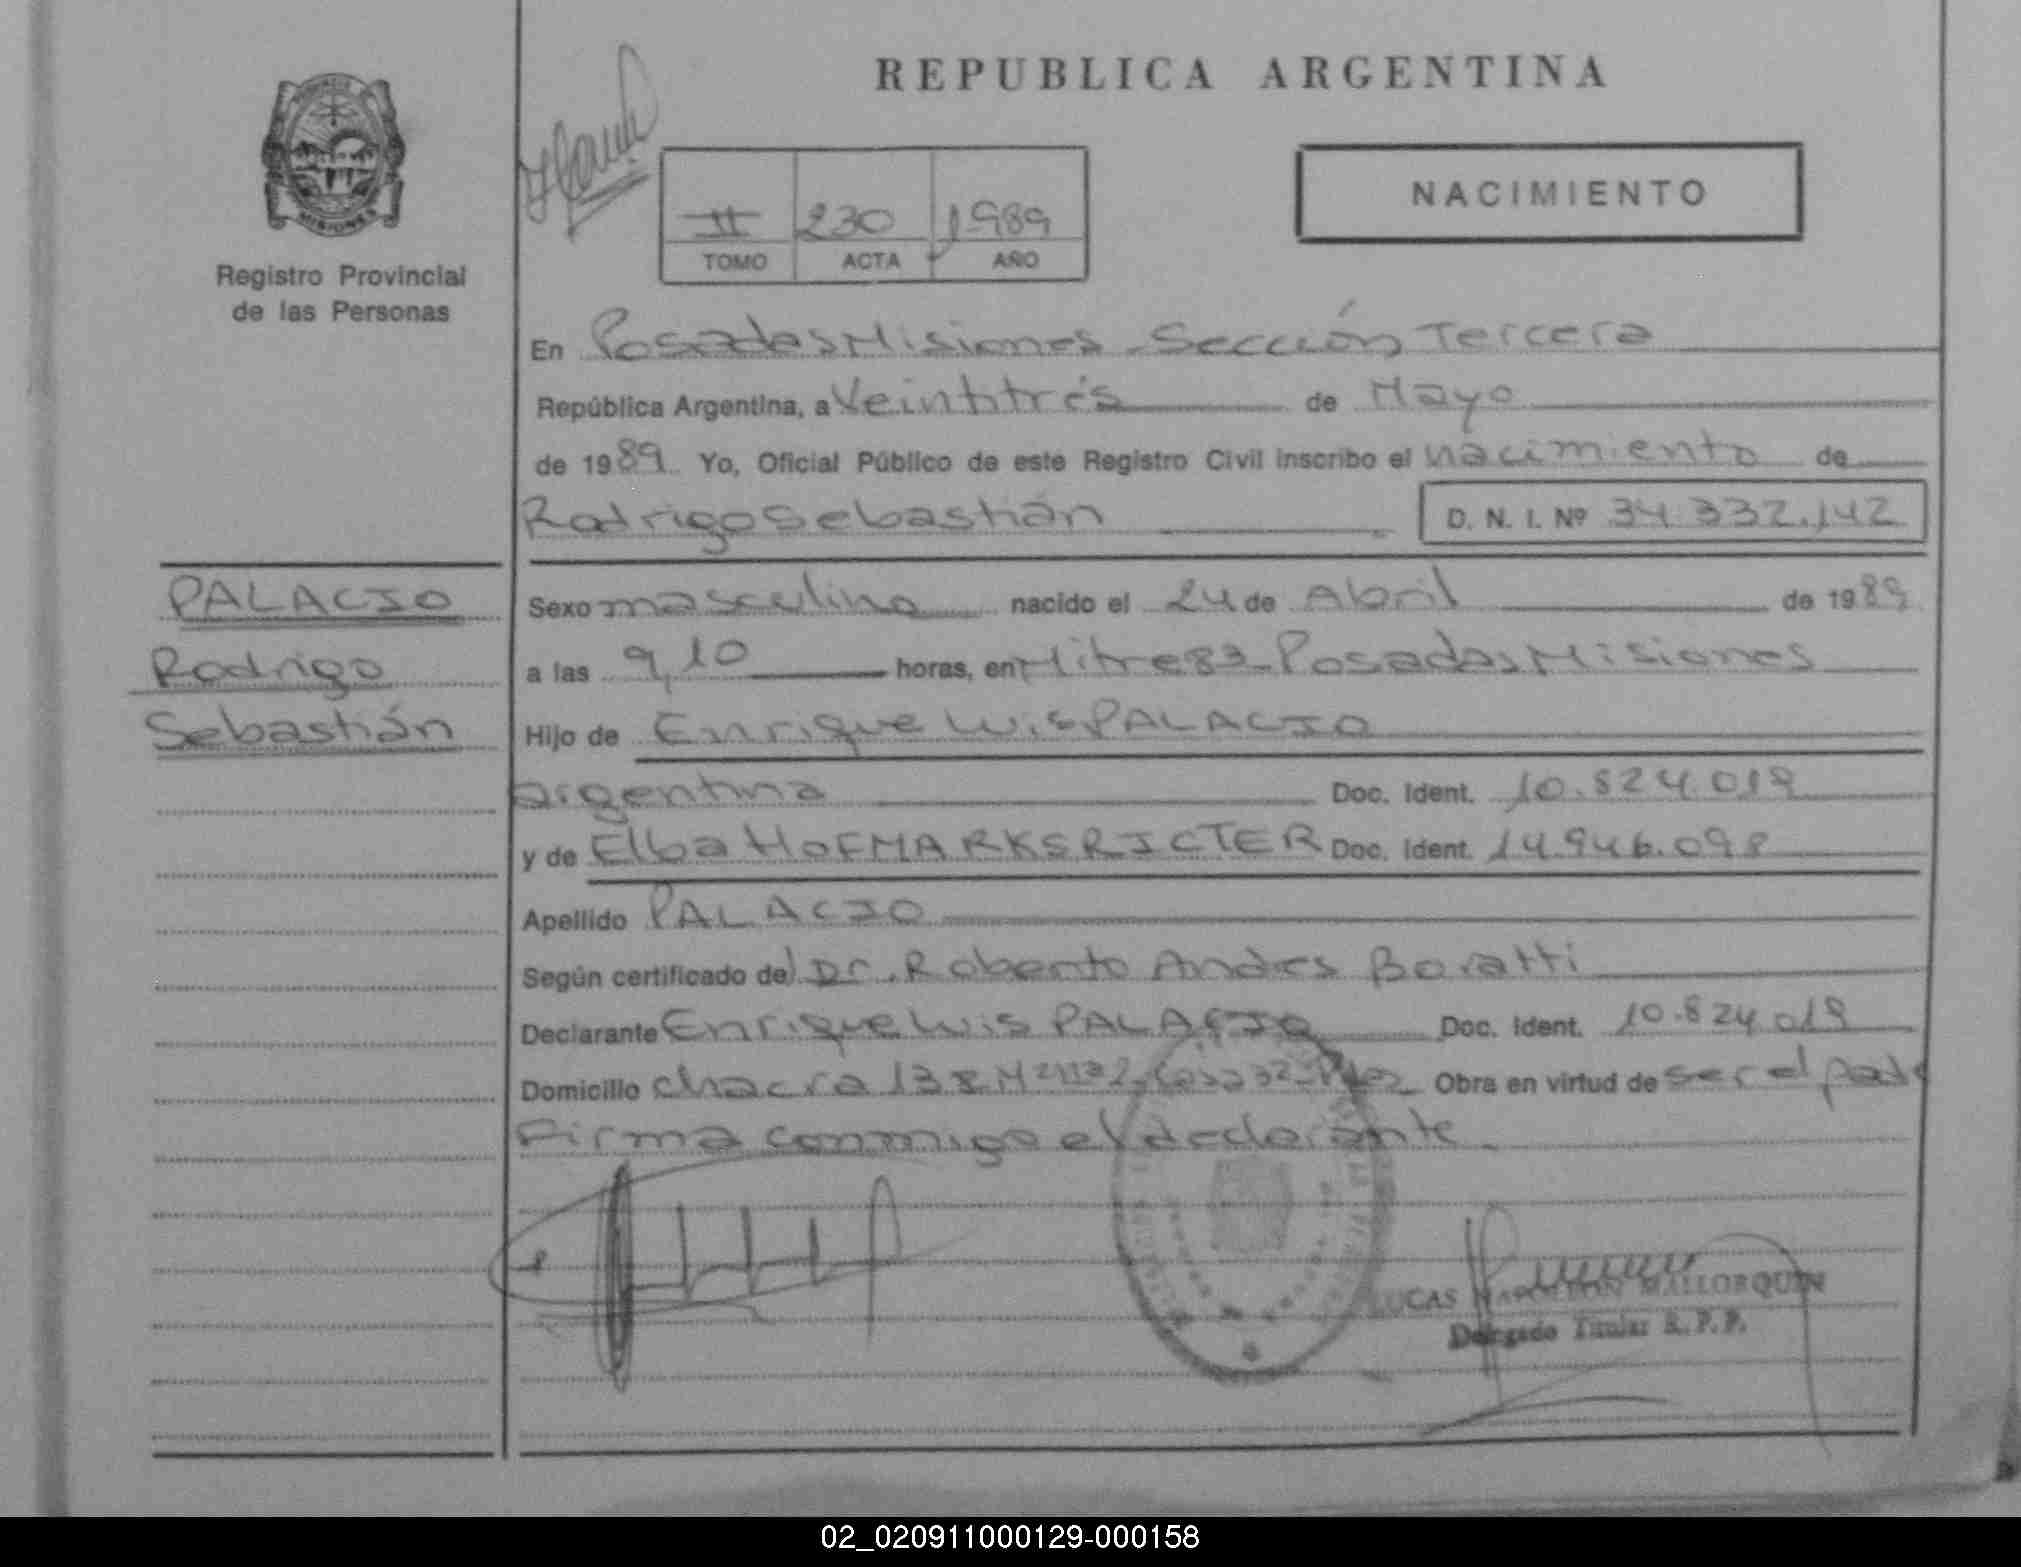 REPUBLICA ARGENTINA
NACIMIENTO
II 230 1989
TOMO ACTA AÑO
MISIONES
Registro Provincial
de las Personas
En Posadas Misiones Sección Tercera
República Argentina, a Veintitrés de Mayo
de 1989 Yo, Oficial Público de este Registro Civil inscribo el nacimiento de
Rodrigo Sebastián D. N. I. Nº 34.332.142
PALACIO
Rodrigo
Sebastián
Sexo masculino nacido el 24 de Abril de 1989
a las 9,10 horas, en Mitre 83 Posadas Misiones
Hijo de Enrique Luis PALACIO
argentina Doc. Ident. 10.824.019
y de Elba HOFMARKSRICTER Doc. Ident. 14.946.098
Apellido PALACIO
Según certificado del Dr. Roberto Andres Boratti
Declarante Enrique Luis PALACIO Doc. Ident. 10.824.019
Domicilio chacra 138 Casa 32 Obra en virtud de ser el padre
Firma conmigo el declarante
LUCAS NAPOLEON MALLORQUIN
Delegado Titular R.P.P.
02_020911000129-000158